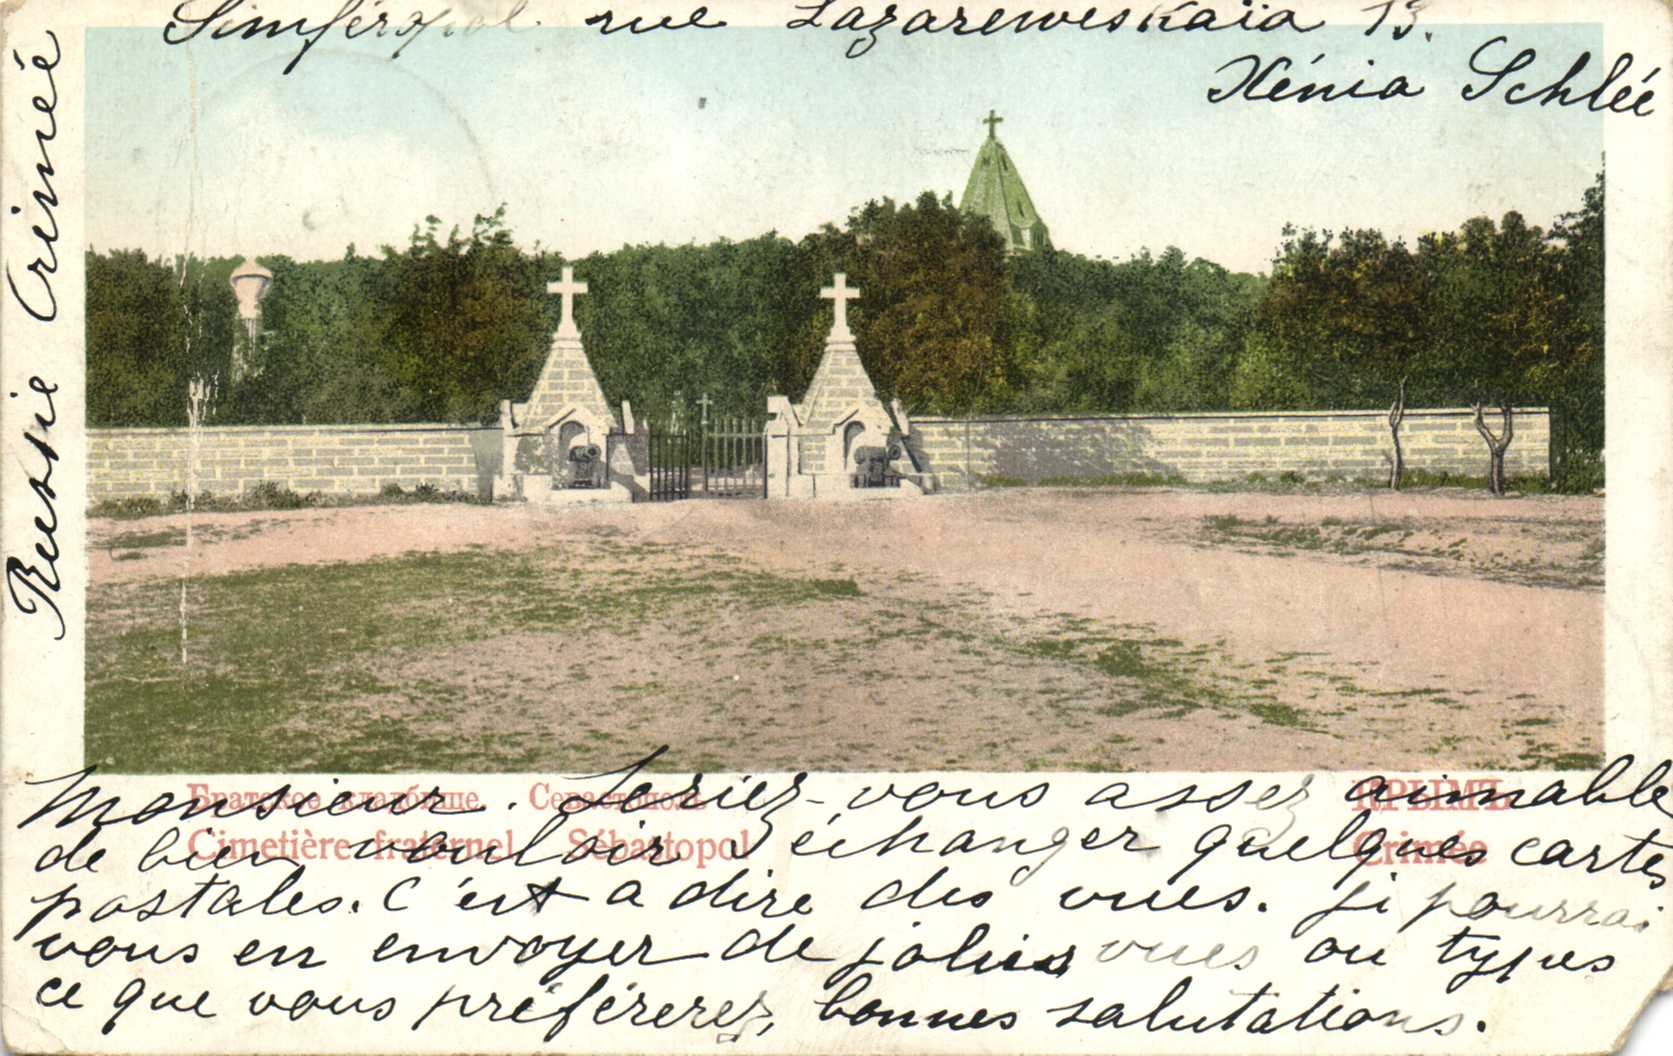 Simféropol rue Lazareweskaïa 13.
Xénia Schlée
Russie Crimée
Братское кладбище. Севастополь.
КРЫМЪ
Cimetière fraternel Sébastopol
Crimée
Monsieur. Seriez-vous assez aimable
de bien vouloir échanger quelques cartes
postales. C'est a dire des vues. Ji pourrai
vous en envoyer de jolies vues ou types
ce que vous préférerez, bonnes salutations.